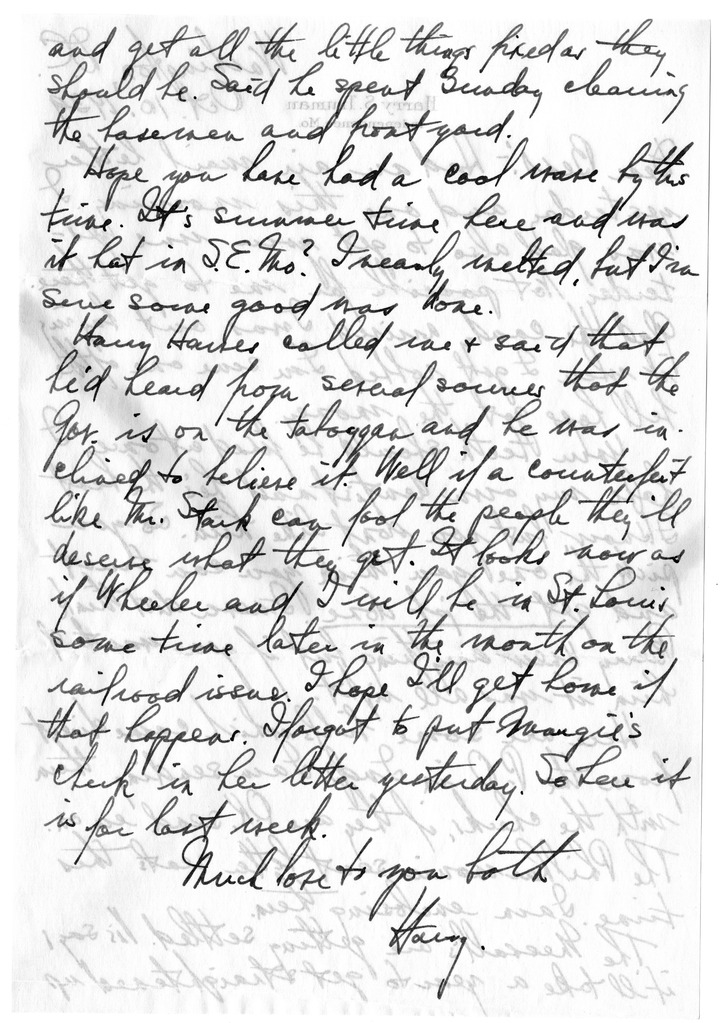 and get all the little things fixed as they
should be. Said he spent Sunday cleaning
the basemen and front yard.
Hope you have had a cool wave by this
time. It's summer time here and was
it hot in S.E. Mo.? I nearly melted, but I'm
sure some good was done.
Harry Hawes called me & said that
he'd heard from several sources that the
Gov. is on the taboggan and he was in-
clined to believe it. Well if a counterfeit
like Mr. Stark can fool the people they'll
deserve what they get. It looks now as
if Wheeler and I will be in St. Louis
some time later in the month on the
railroad issue. I hope I'll get home if
that happens. I forgot to put Margie's
check in her letter yesterday. So here it
is for last week.
Much love to you both
Harry.